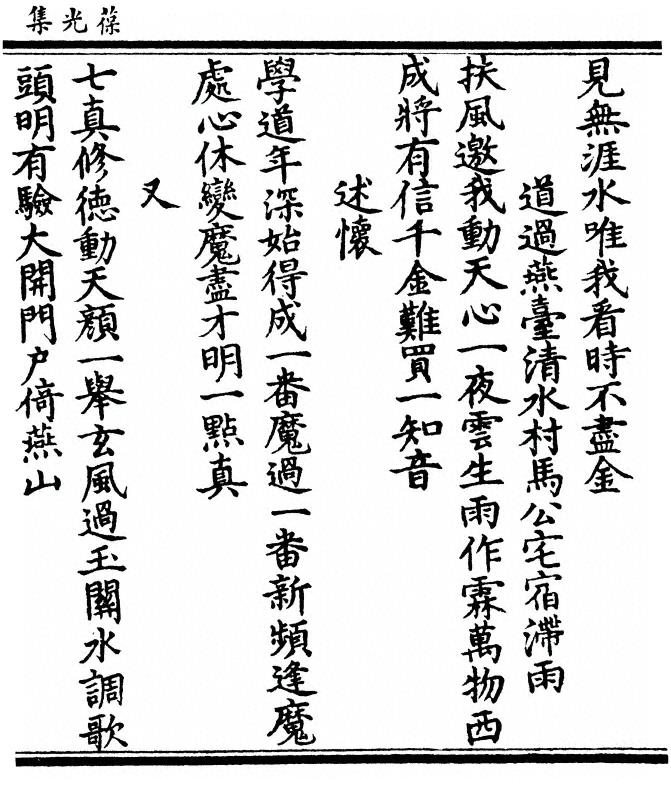 葆光集
見無涯水唯我看時不盡金
道過燕臺清水村馬公宅宿滯雨
扶風邀我動天心一夜雲生雨作霖萬物西
成將有信千金難買一知音
述懷
學道年深始得成一番魔過一番新頻逢魔
處心休變魔盡才明一點真
又
七真修德動天顏一舉玄風過玉關水調歌
頭明有驗大開門户倚燕山